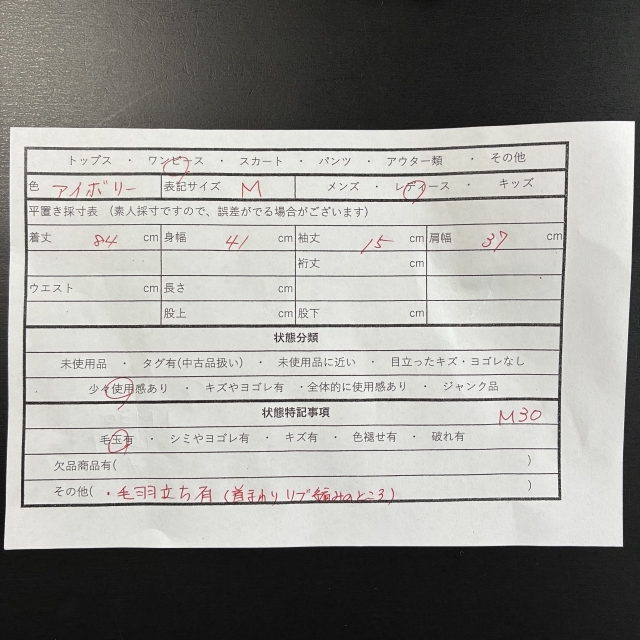 トップス ・ ワンピース ・ スカート ・ パンツ ・ アウター類 ・ その他
色 アイボリー 表記サイズ M メンズ ・ レディース ・ キッズ
平置き採寸表 (素人採寸ですので、誤差がでる場合がございます)
着丈 84 cm 身幅 41 cm 袖丈 15 cm 肩幅 37 cm
裄丈 cm
ウエスト cm 長さ cm
股上 cm 股下 cm
状態分類
未使用品 ・ タグ有(中古品扱い) ・ 未使用品に近い ・ 目立ったキズ・ヨゴレなし
少々使用感あり ・ キズやヨゴレ有 ・全体的に使用感あり ・ ジャンク品
状態特記事項 M30
毛玉有 ・ シミやヨゴレ有 ・ キズ有 ・ 色褪せ有 ・ 破れ有
欠品商品有( )
その他( ・毛羽立ち有 (首まわりリブ編みのところ) )